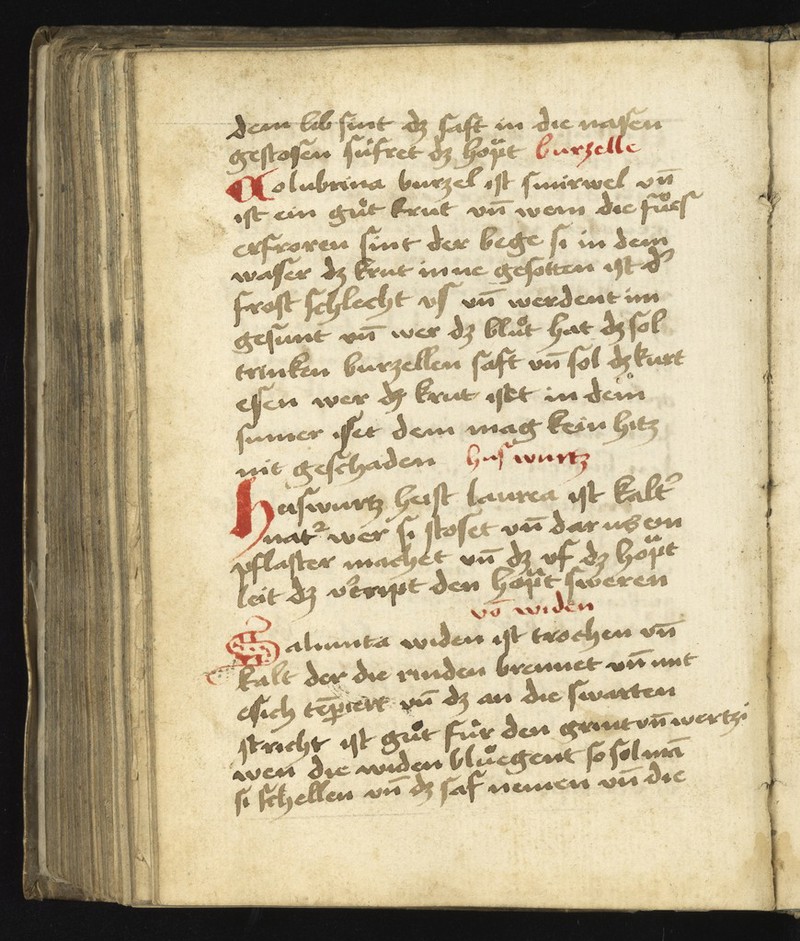 dem lib sint dz saft in die nasen
gestosen süfret dz hopt burzelle
Colubrina burzel ist smirwel vn̄
ist ein guͦt krut vn̄ wem die fuͤs
erfroren sint der bege si in dem
waser dz krut inne gesotten ist d᷑
frost schlecht vs vn̄ werdent im
gesunt vn̄ wer dz bluͦt hat dz sol
trinken burzellen saft vn̄ sol dz kurt
essen wer dz krut isset in dem
sumer isset dem mag kein hitz
nit geschaden huswurtz
huswurtz heist laurea ist kalt᷑
nat᷑ wer si stoset vn̄ dar us ein
pflaster machet vn̄ dz vf dz hoͤpt
leit dz v᷑tript den hoͤpt sweren
vō widen
Saliunta widen ist trochen vn̄
kalt der die rinden brennet vn̄ mit
essich temperiert vn̄ dz an die swarten
stricht ist guͦt fuͤr den grint vn̄ wertzi
wen die widen bluͤegent so sol mā
si schellen vn̄ dz saf nemen vn̄ die